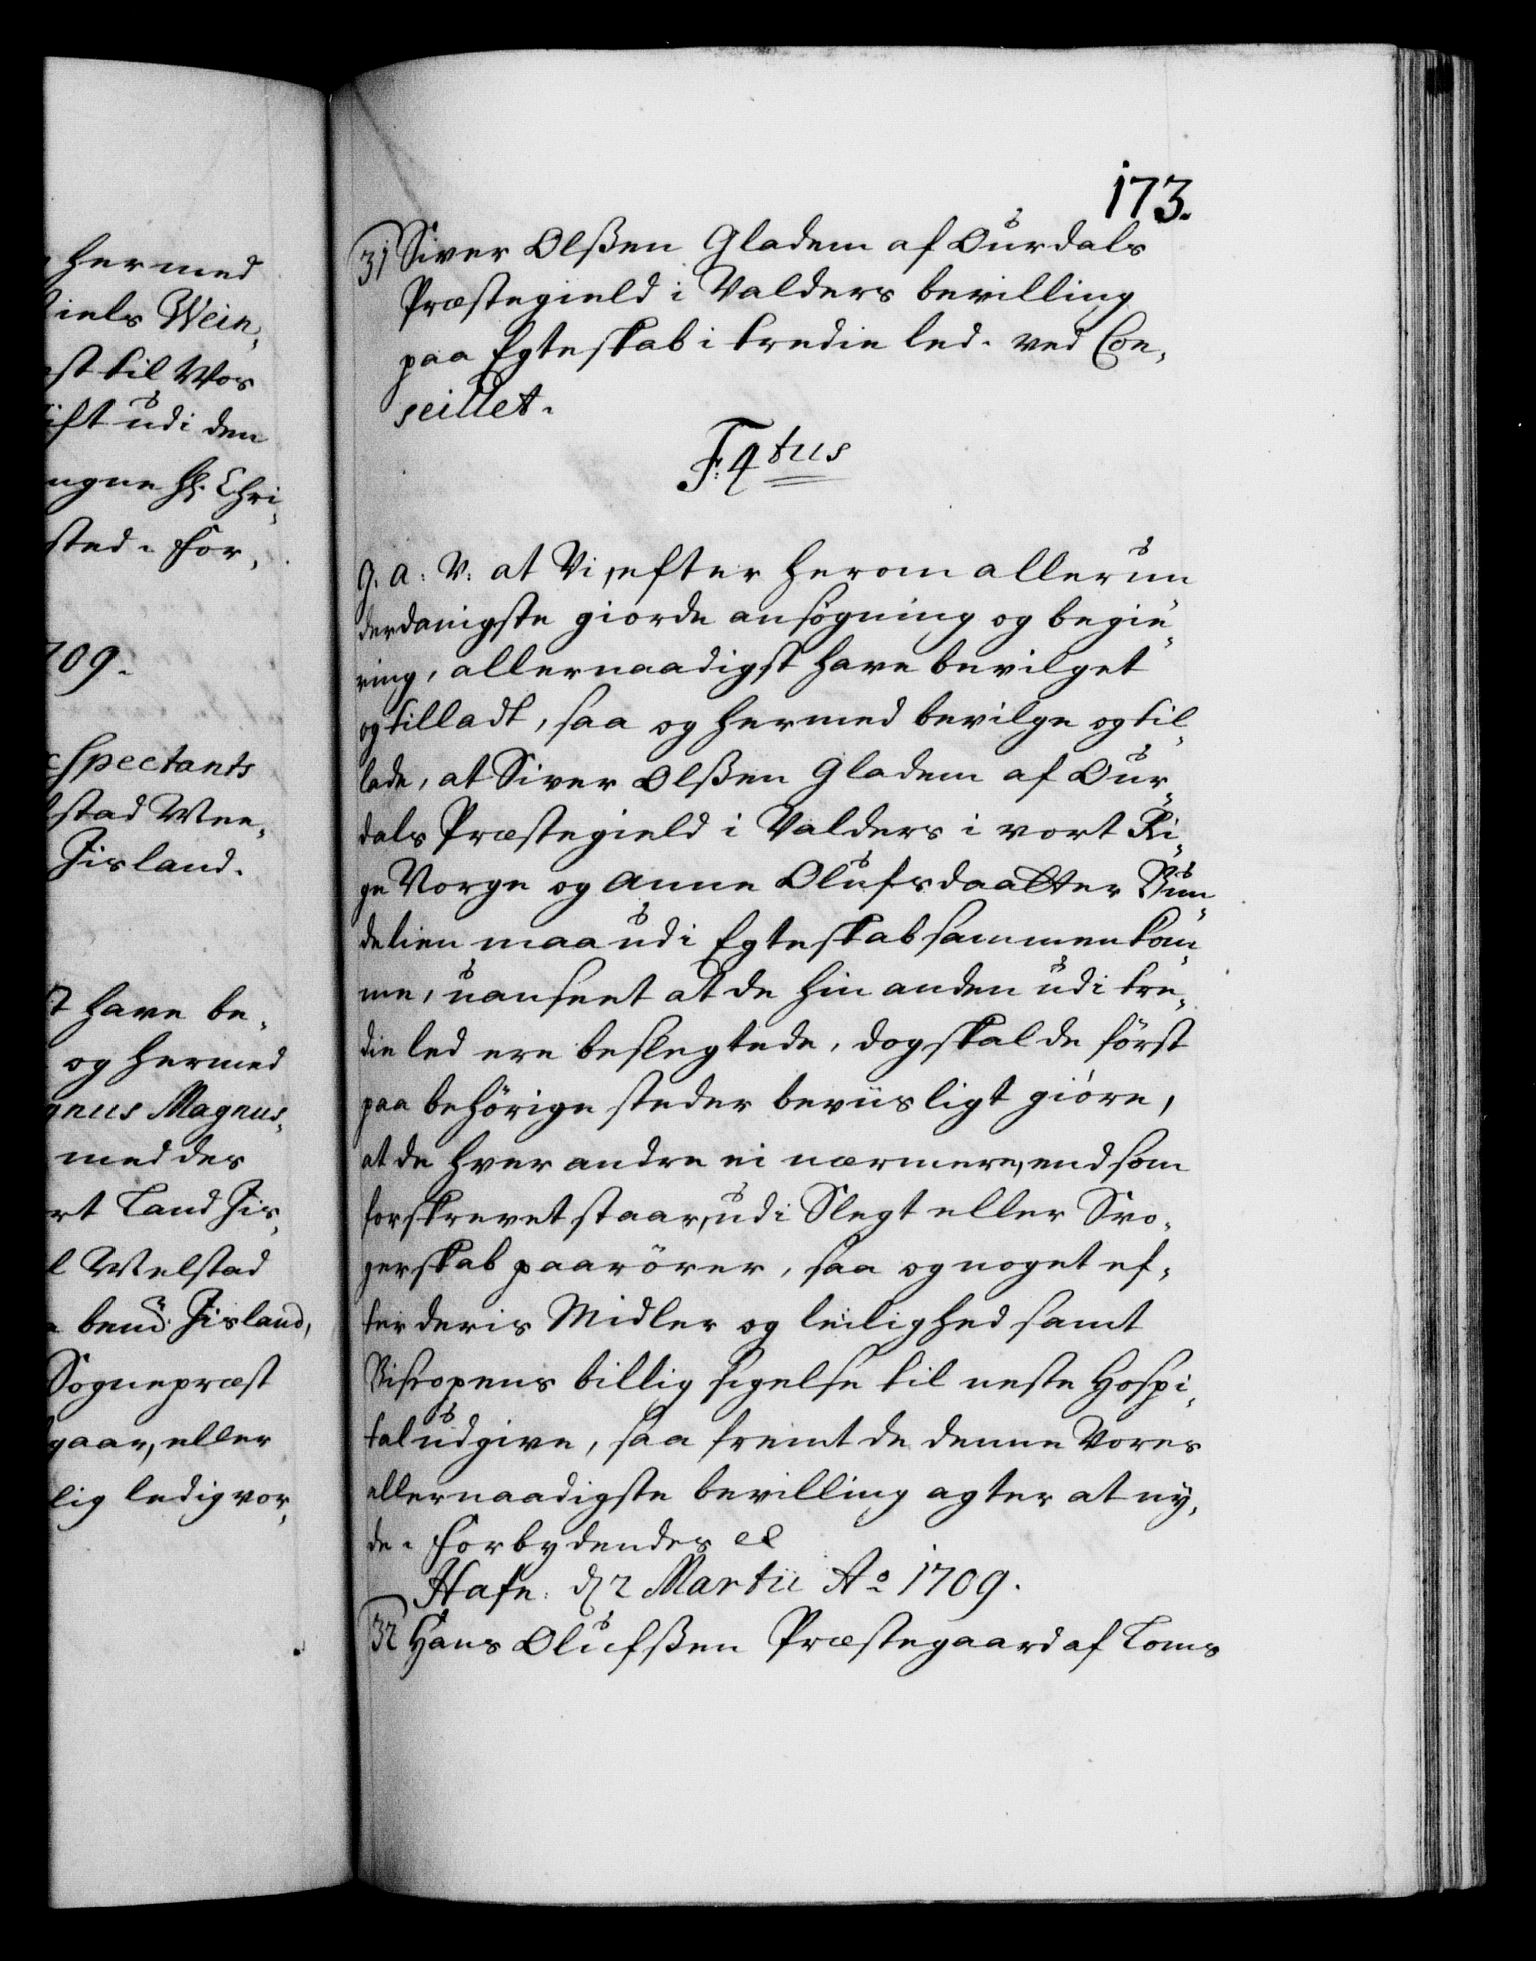 hermed
iels Wein,
st til Vos
ift udi den
ugne H: Chri,
sted. For,
709.
spectants
lstad Wee,
Jisland.
t have be,
og hermed
gnus Magnus,
med des
rt Land Jis,
l Welstad
bend: Jisland,
Sognepræst
gaar, eller
lig ledig vor,
173.
31 Siver Olßen Gladem af Ourdals
Præstegield i Valders bevilling
paa Egteskab i tredie led. ved Con,
seillet.
F: 4tus
G. a: V: at Vi, efter herom allerun
derdanigste giorde ansögning og begie,
ring, allernaadigst have bevilget
og tilladt, saa og hermed bevilge og til,
lade, at Siver Olßen Gladem af Our,
dals Præstegield i Valders i vort Ri,
ge Norge og Anne Olufsdaatter Bun,
delien maa udi Egteskab sammen kom,
me, uanseet at de hin anden udi tre,
die led ere beslegtede, dog skal de först
paa behörige steder beviisligt giöre,
at de hver andre ei nærmere, end som
forskrevet staar, udi Slegt eller Svo,
gerskab paarörer, saa og noget ef,
ter deris Midler og leilighed samt
Bispens billig sigelse til neste Hospi,
tal udgive, saa fremt de denne Vores
allernaadigste bevilling agter at ny,
de. Forbydendes et
Hafn: d 2 Martii Ao 1709.
32 Hans Olufßen Præstegaard af Loms